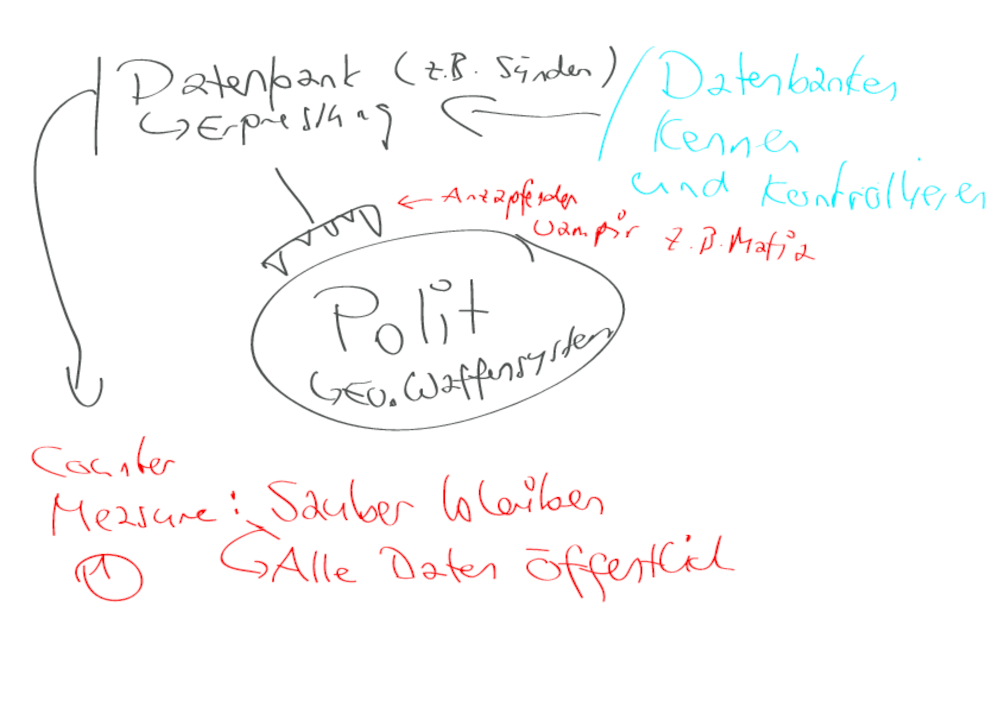 Datenbank (z.B. Sünden)
↳ Erpressung
Datenbanken
kennen
und kontrollieren
← Anzapfender
Vampir z.B. Mafia
Polit
↳ Ev. Waffensystem
Counter
Measure: Sauber bleiben
① ↳ Alle Daten öffentlich